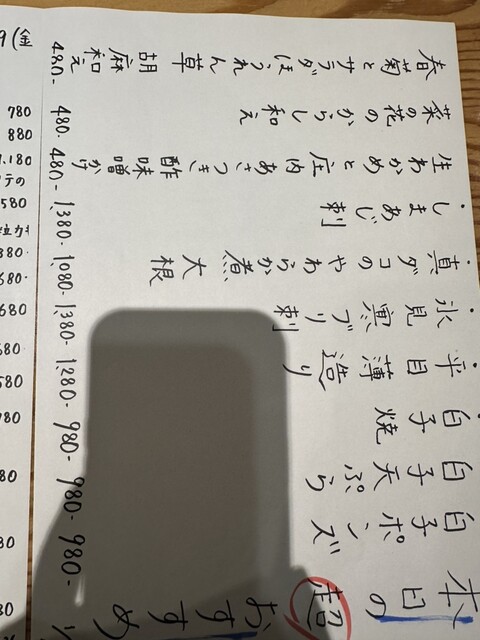 本日の超おすすめ
白子ポンズ 980-
白子天ぷら 980-
・白子焼 980-
・平目薄造り 1,280-
・氷見寒ブリ刺 1,380-
・真ダコのやわらか煮 大根 1,080-
・しまあじ刺 1,380-
生わかめと庄内あさつき酢味噌かけ 480-
菜の花のからし和え 480-
春菊とサラダほうれん草胡麻和え 480-
9(金
780
880
1,180
580
680